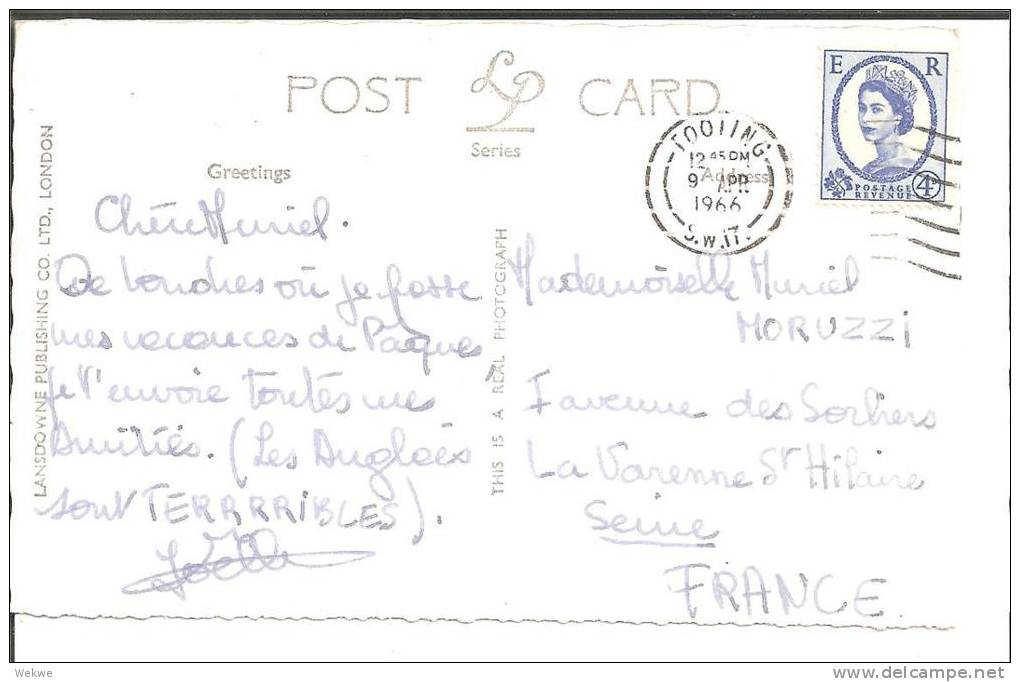 POST CARD
LP
Series
Greetings
Address
TOOTING
12 45 PM
9 APR
1966
S.W.17.
E R
POSTAGE
REVENUE
4D
LANSDOWNE PUBLISHING CO. LTD., LONDON
Chère Muriel.
De Londres où je passe
mes vacances de Pâques
je t'envoie toutes mes
Amitiés. (Les Anglais
sont TERRRRIBLES).
Joëlle
THIS IS A REAL PHOTOGRAPH
Mademoiselle Muriel
MORUZZI
avenue des Sorbiers
La Varenne St Hilaire
Seine
FRANCE
Wekwe
www.delcampe.net